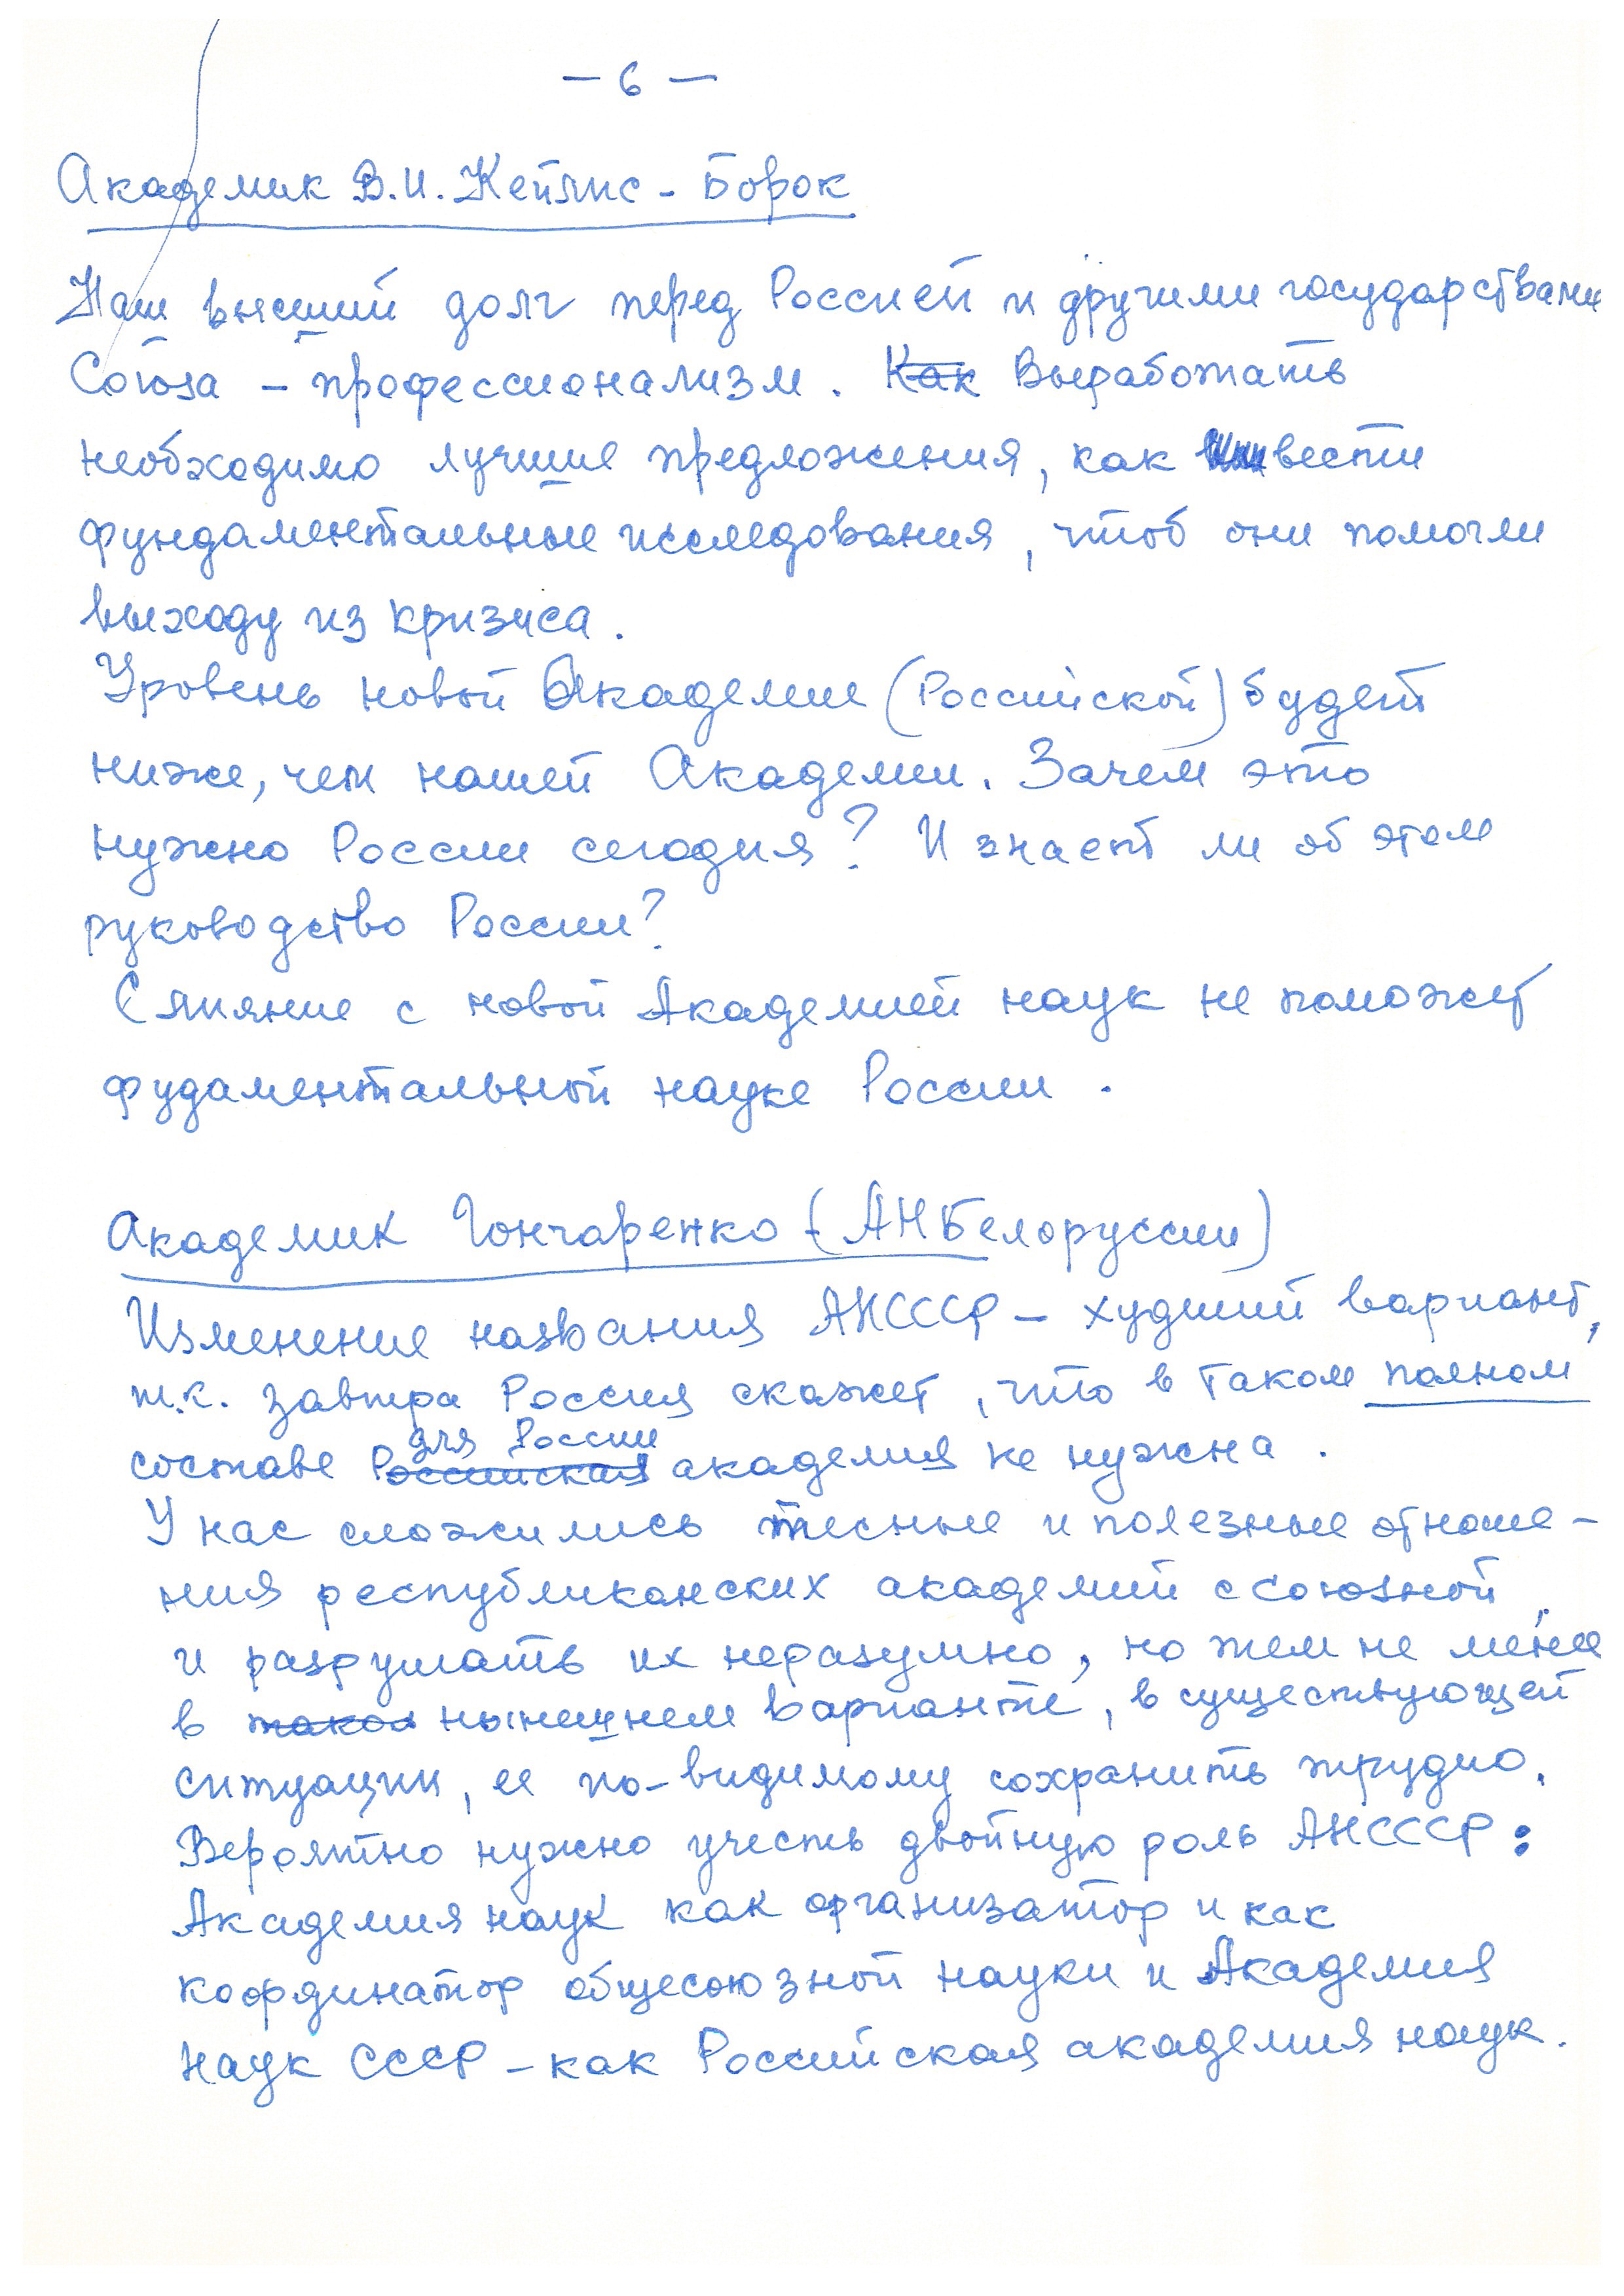 – 6 –
Академик В.И. Кейлис-Борок
Наш высший долг перед Россией и другими государствами
Союза – профессионализм. Как Выработать
необходимо лучшие предложения, как вести
фундаментальные исследования, чтоб они помогли
выходу из кризиса.
Уровень новой Академии (Российской) будет
ниже, чем нашей Академии. Зачем это
нужно России сегодня? И знает ли об этом
руководство России?
Слияние с новой Академией наук не поможет
фудаментальной науке России.
Академик Гончаренко (АН Белоруссии)
Изменение названия АНСССР – худший вариант,
т.к. завтра Россия скажет, что в таком полном
для России
составе Российская академия не нужна.
У нас сложились тесные и полезные отноше-
ния республиканских академий с союзной,
и разрушать их неразумно, но тем не менее
в такой нынешнем варианте, в существующей
ситуации, ее по-видимому сохранить трудно.
Вероятно нужно учесть двойную роль АНСССР:
Академия наук как организатор и как
координатор общесоюзной науки и Академия
Наук СССР – как Российская академия наук.